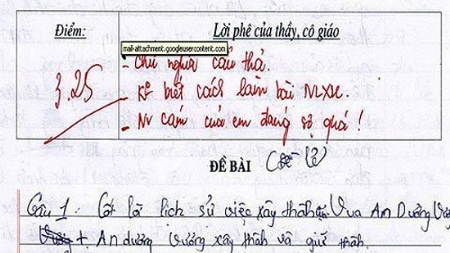 Điểm:
Lời phê của thầy, cô giáo
mail-attachment.googleusercontent.com
Chữ nghĩa cẩu thả.
3.25
K° biết cách làm bài NLXH.
- Nv cảm của em đáng sợ quá!
ĐỀ BÀI
(Lẻ)
Câu 1. Cốt lõi lịch sử việc xây thành Vua An Dương Vương
+ An dương vương xây thành và giữ thành.